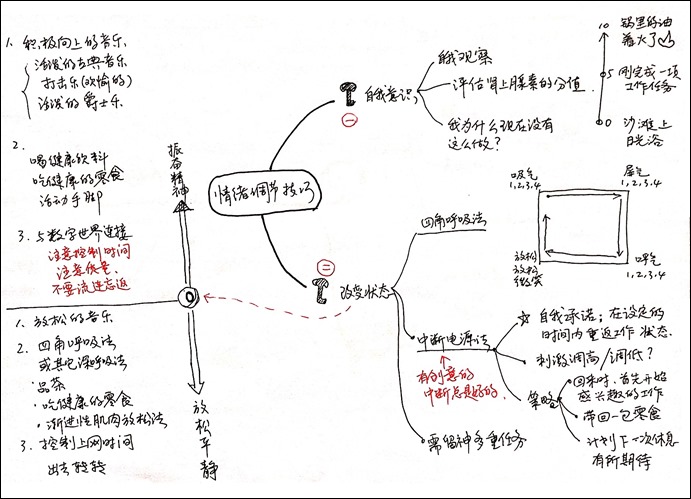 情绪调节技巧
一
自我意识
自我观察
评估肾上腺素的分值
我为什么现在没有
这么做?
10 锅里的油
着火了
5 刚完成一项
工作任务
0 沙滩上
日光浴
二
改变状态
四角呼吸法
吸气
1,2,3,4
屏气
1,2,3,4
呼气
1,2,3,4
放松
放松
微笑
中断电源法
有创意的
中断总是好的
自我承诺:在设定的
时间内重返工作状态
刺激调高/调低?
策略
回来时,首先开始
感兴趣的工作
带回一包零食
计划下一次休息
有所期待
需留神多重任务
振奋精神
1. 积极向上的音乐
活泼的古典音乐
打击乐(欢愉的)
活泼的爵士乐
2.
喝健康饮料
吃健康的零食
活动手脚
3. 与数字世界连接
注意控制时间
注意质量
不要流连忘返
0
放松平静
1. 放松的音乐
2. 四角呼吸法
或其它深呼吸法
·品茶
·吃健康的零食
·渐进性肌肉放松法
3. 控制上网时间
出去转转